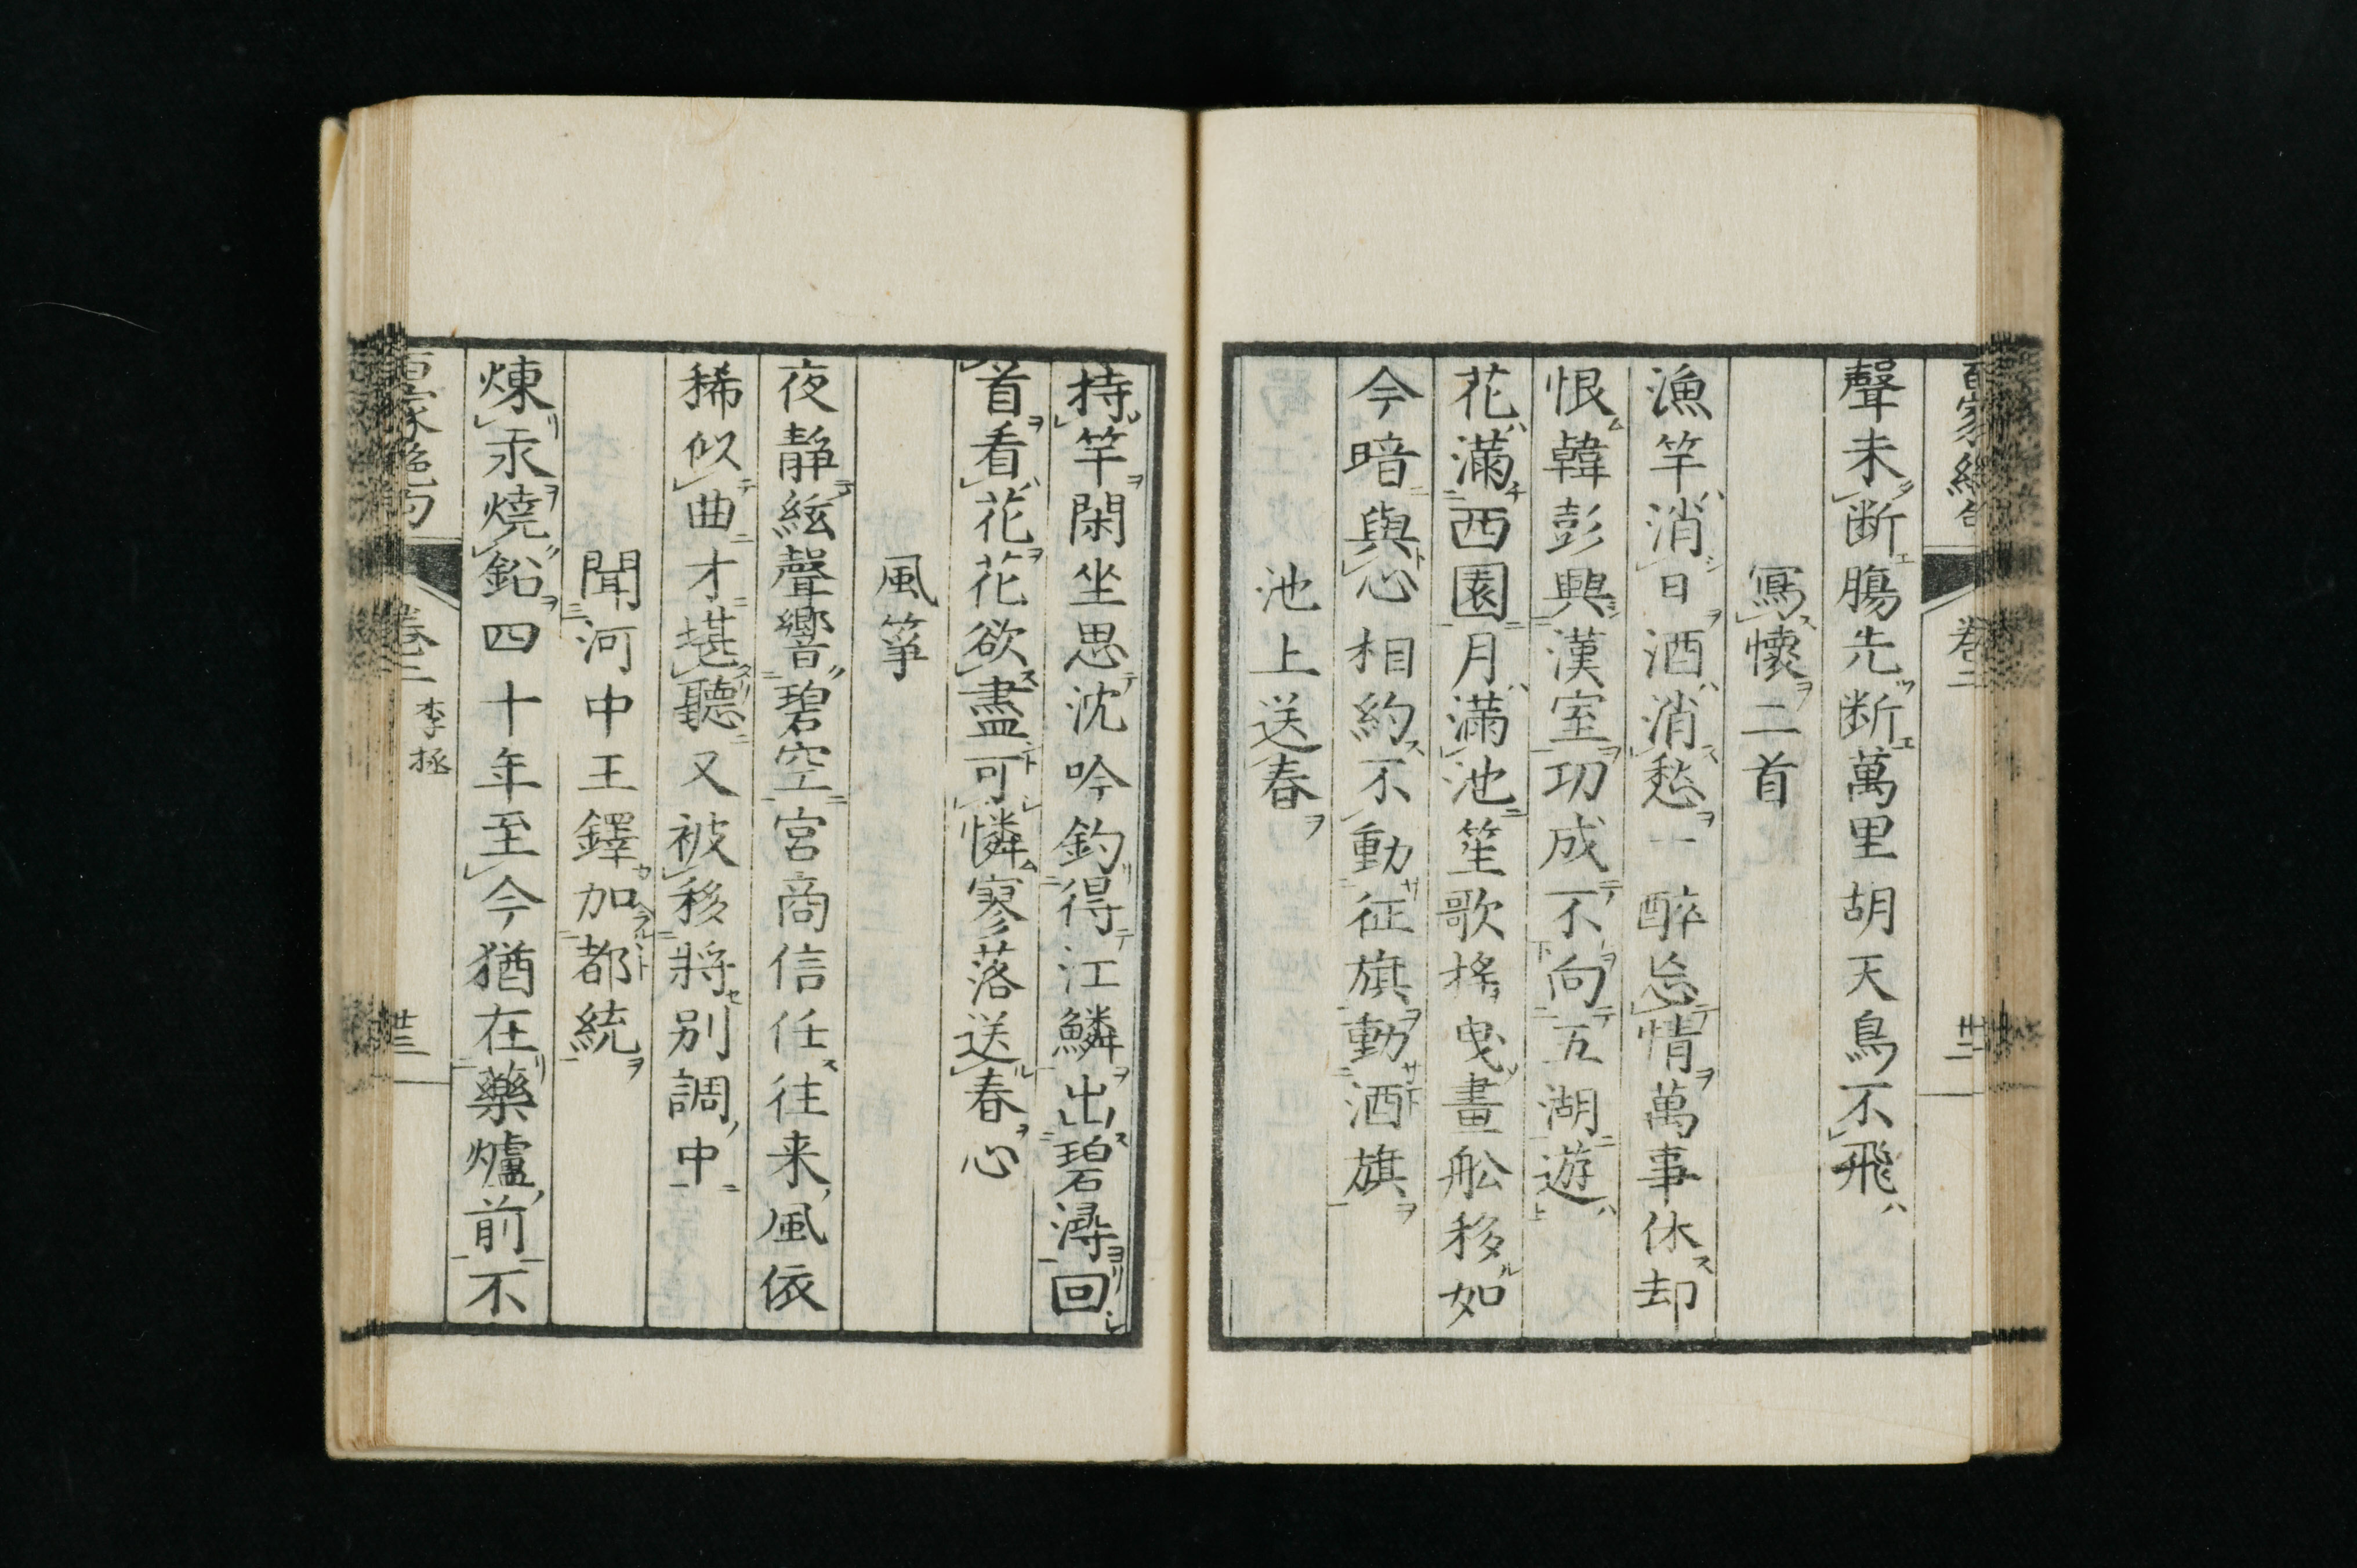 百家絶句
卷二
廿二
聲未断膓先断萬里胡天鳥不飛
寫懷二首
漁竿消日酒消愁一醉忘情萬事休却
恨韓彭興漢室功成不向五湖遊
花滿西園月滿池笙歌搖曳畫舩移如
今暗與心相約不動征旗動酒旗
池上送春
持竿閑坐思沈吟釣得江鱗出碧潯回
首看花花欲盡可憐寥落送春心
風箏
夜静絃聲響碧空宮商信任往来風依
稀似曲才堪聽又被移將别調中
聞河中王鐸加都統
煉汞燒鉛四十年至今猶在藥爐前不
百家絶句
卷二
李拯
廿三